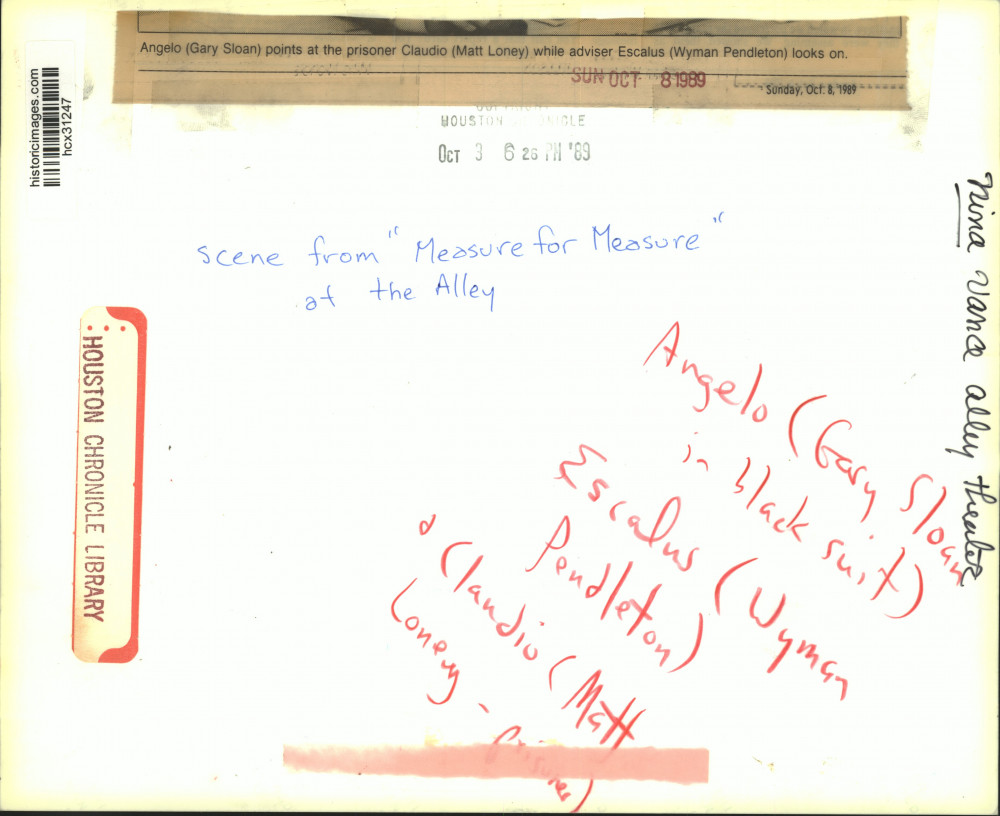 Angelo (Gary Sloan) points at the prisoner Claudio (Matt Loney) while adviser Escalus (Wyman Pendleton) looks on.
SUN OCT 8 1989
Sunday, Oct. 8, 1989
HOUSTON
OCT 3 6 26 PM '89
historicimages.com
hcx31247
scene from "Measure for Measure"
at the Alley
nina vance alley theatre
HOUSTON CHRONICLE LIBRARY
Angelo (Gary Sloan
in black suit)
Escalus (Wyman
Pendleton)
& Claudio (Matt
Loney - prisoner)